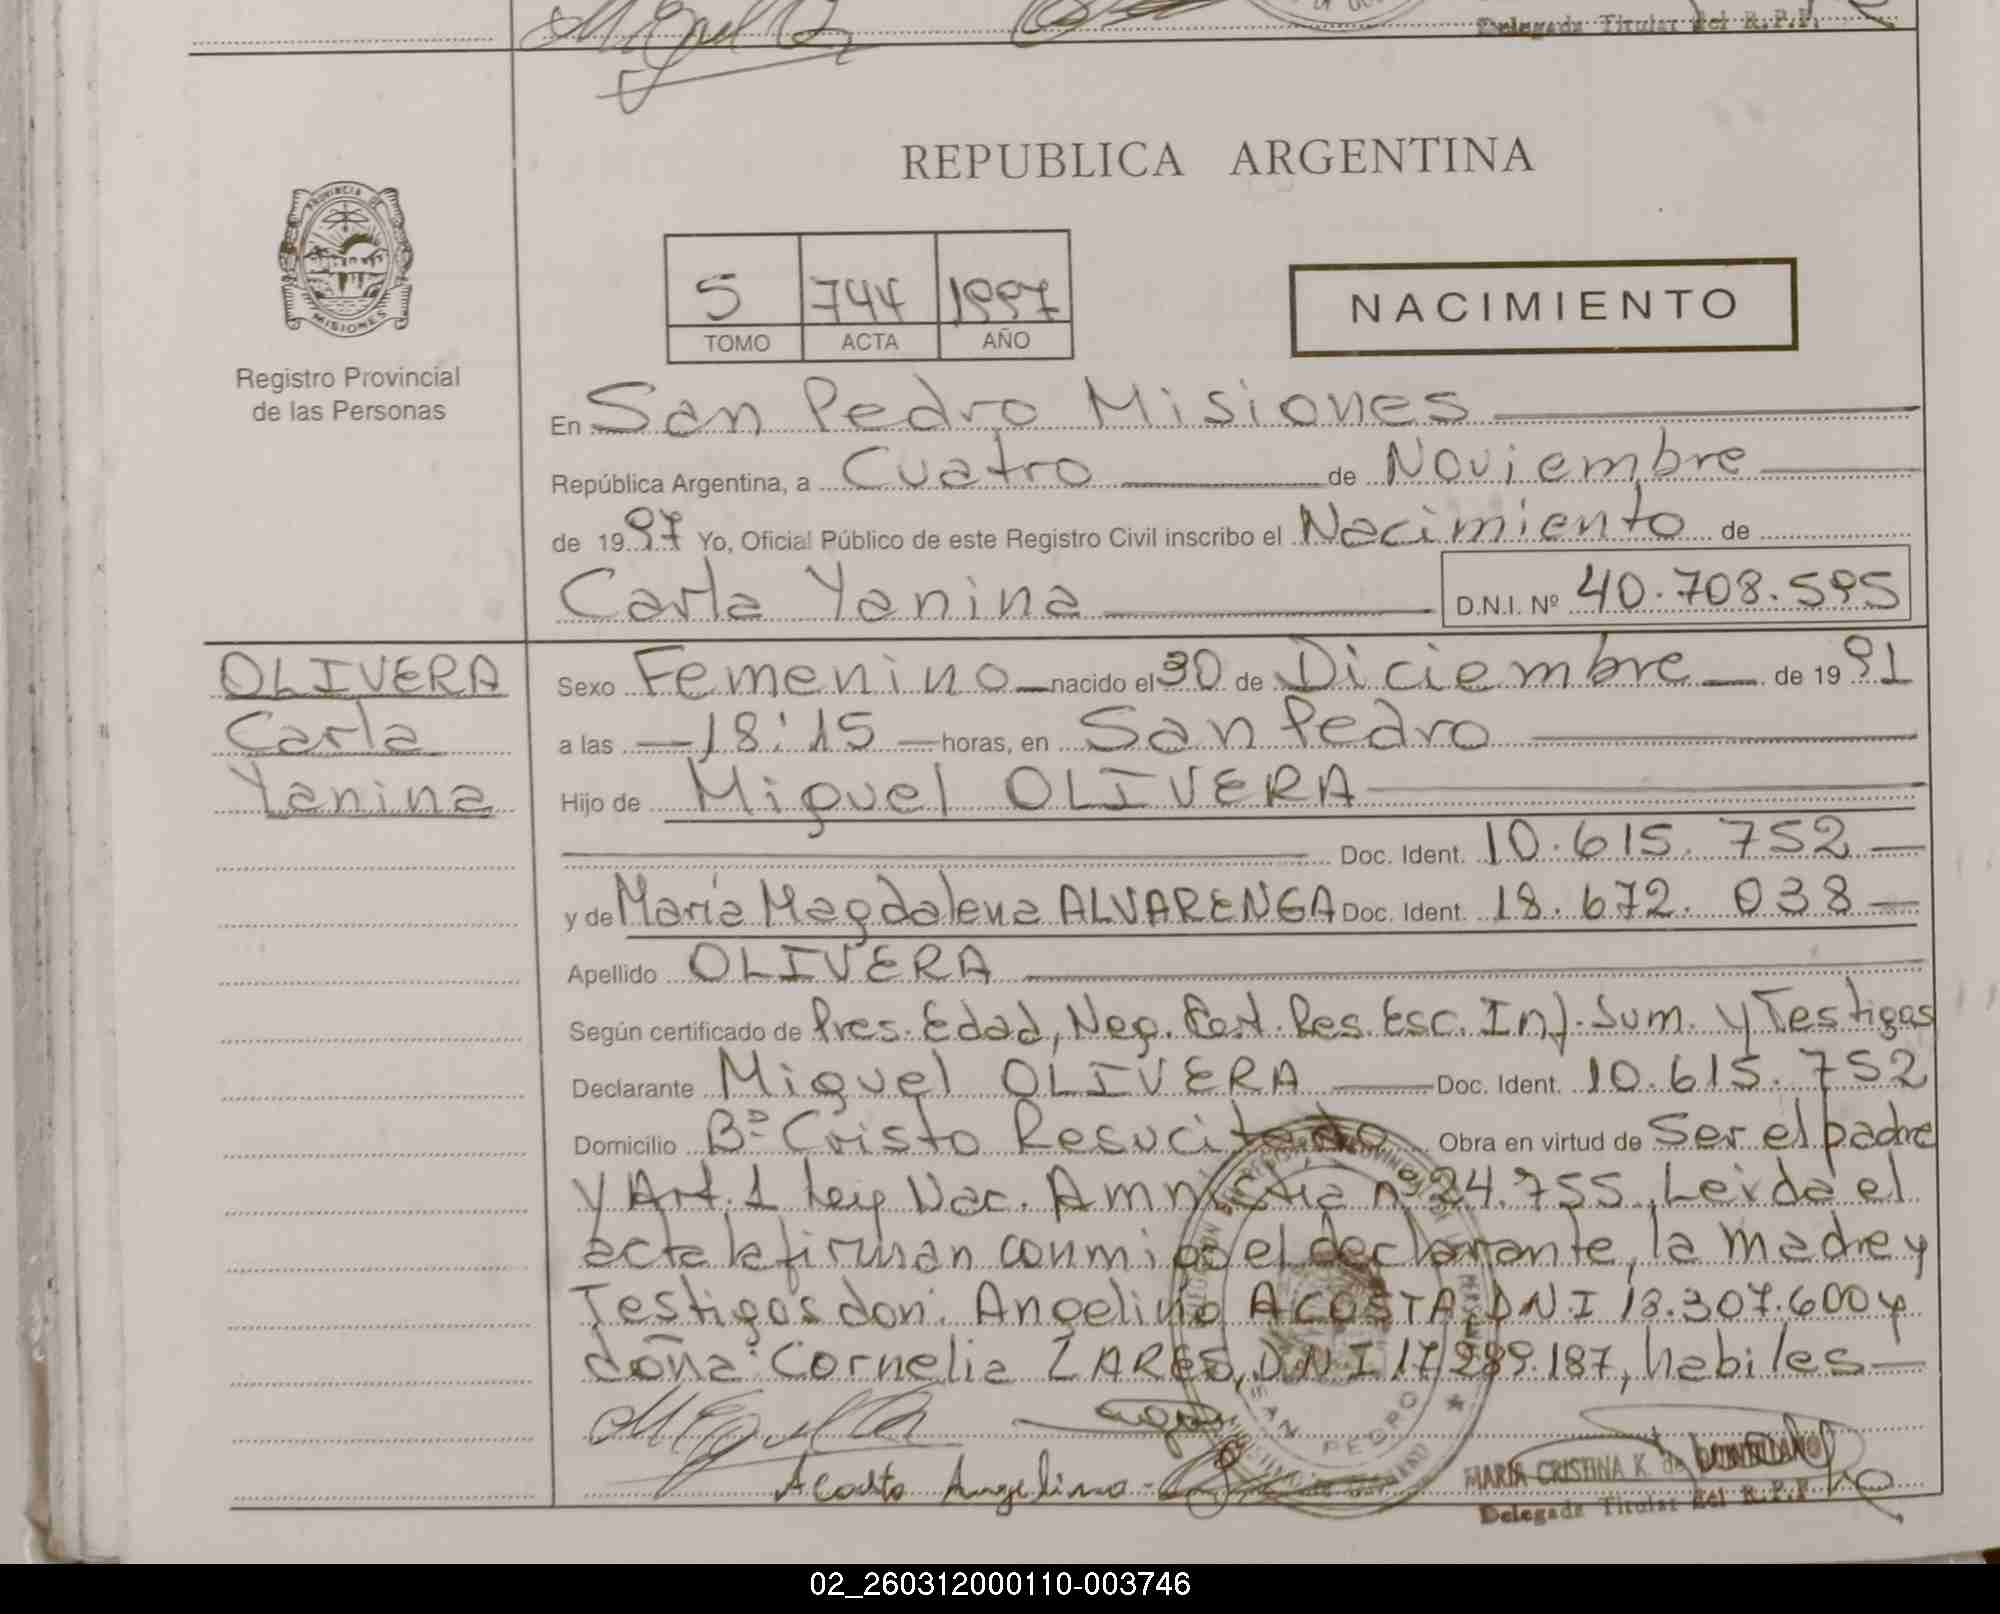 Delegada Titular del R.P.P.
REPUBLICA ARGENTINA
PROVINCIA DE
MISIONES
5 744 1997
TOMO ACTA AÑO
NACIMIENTO
Registro Provincial
de las Personas
En San Pedro Misiones
República Argentina, a Cuatro de Noviembre
de 1997 Yo, Oficial Público de este Registro Civil inscribo el Nacimiento de
Carla Yanina D.N.I. Nº 40.708.595
OLIVERA
Carla
Yanina
Sexo Femenino nacido el 30 de Diciembre de 1991
a las 18:15 horas, en San Pedro
Hijo de Miguel OLIVERA
Doc. Ident. 10.615.752
y de María Magdalena ALVARENGA Doc. Ident. 18.672.038
Apellido OLIVERA
Según certificado de Pres. Edad, Neg. Cert. Res. Esc. Inf. Sum. y Testigos
Declarante Miguel OLIVERA Doc. Ident. 10.615.752
Domicilio Bº Cristo Resucitado Obra en virtud de Ser el padre
y Art. 1 Ley Nac. Amnistia nº 24.755. Leida el
acta la firman conmigo el declarante, la madre y
Testigos don: Angelino ACOSTA DNI 18.307.600 y
doña: Cornelia ZARES, DNI 17.289.187, habiles
SAN PEDRO
Acosta Angelino
MARIA CRISTINA K. de
Delegada Titular del R.P.P.
02_260312000110-003746